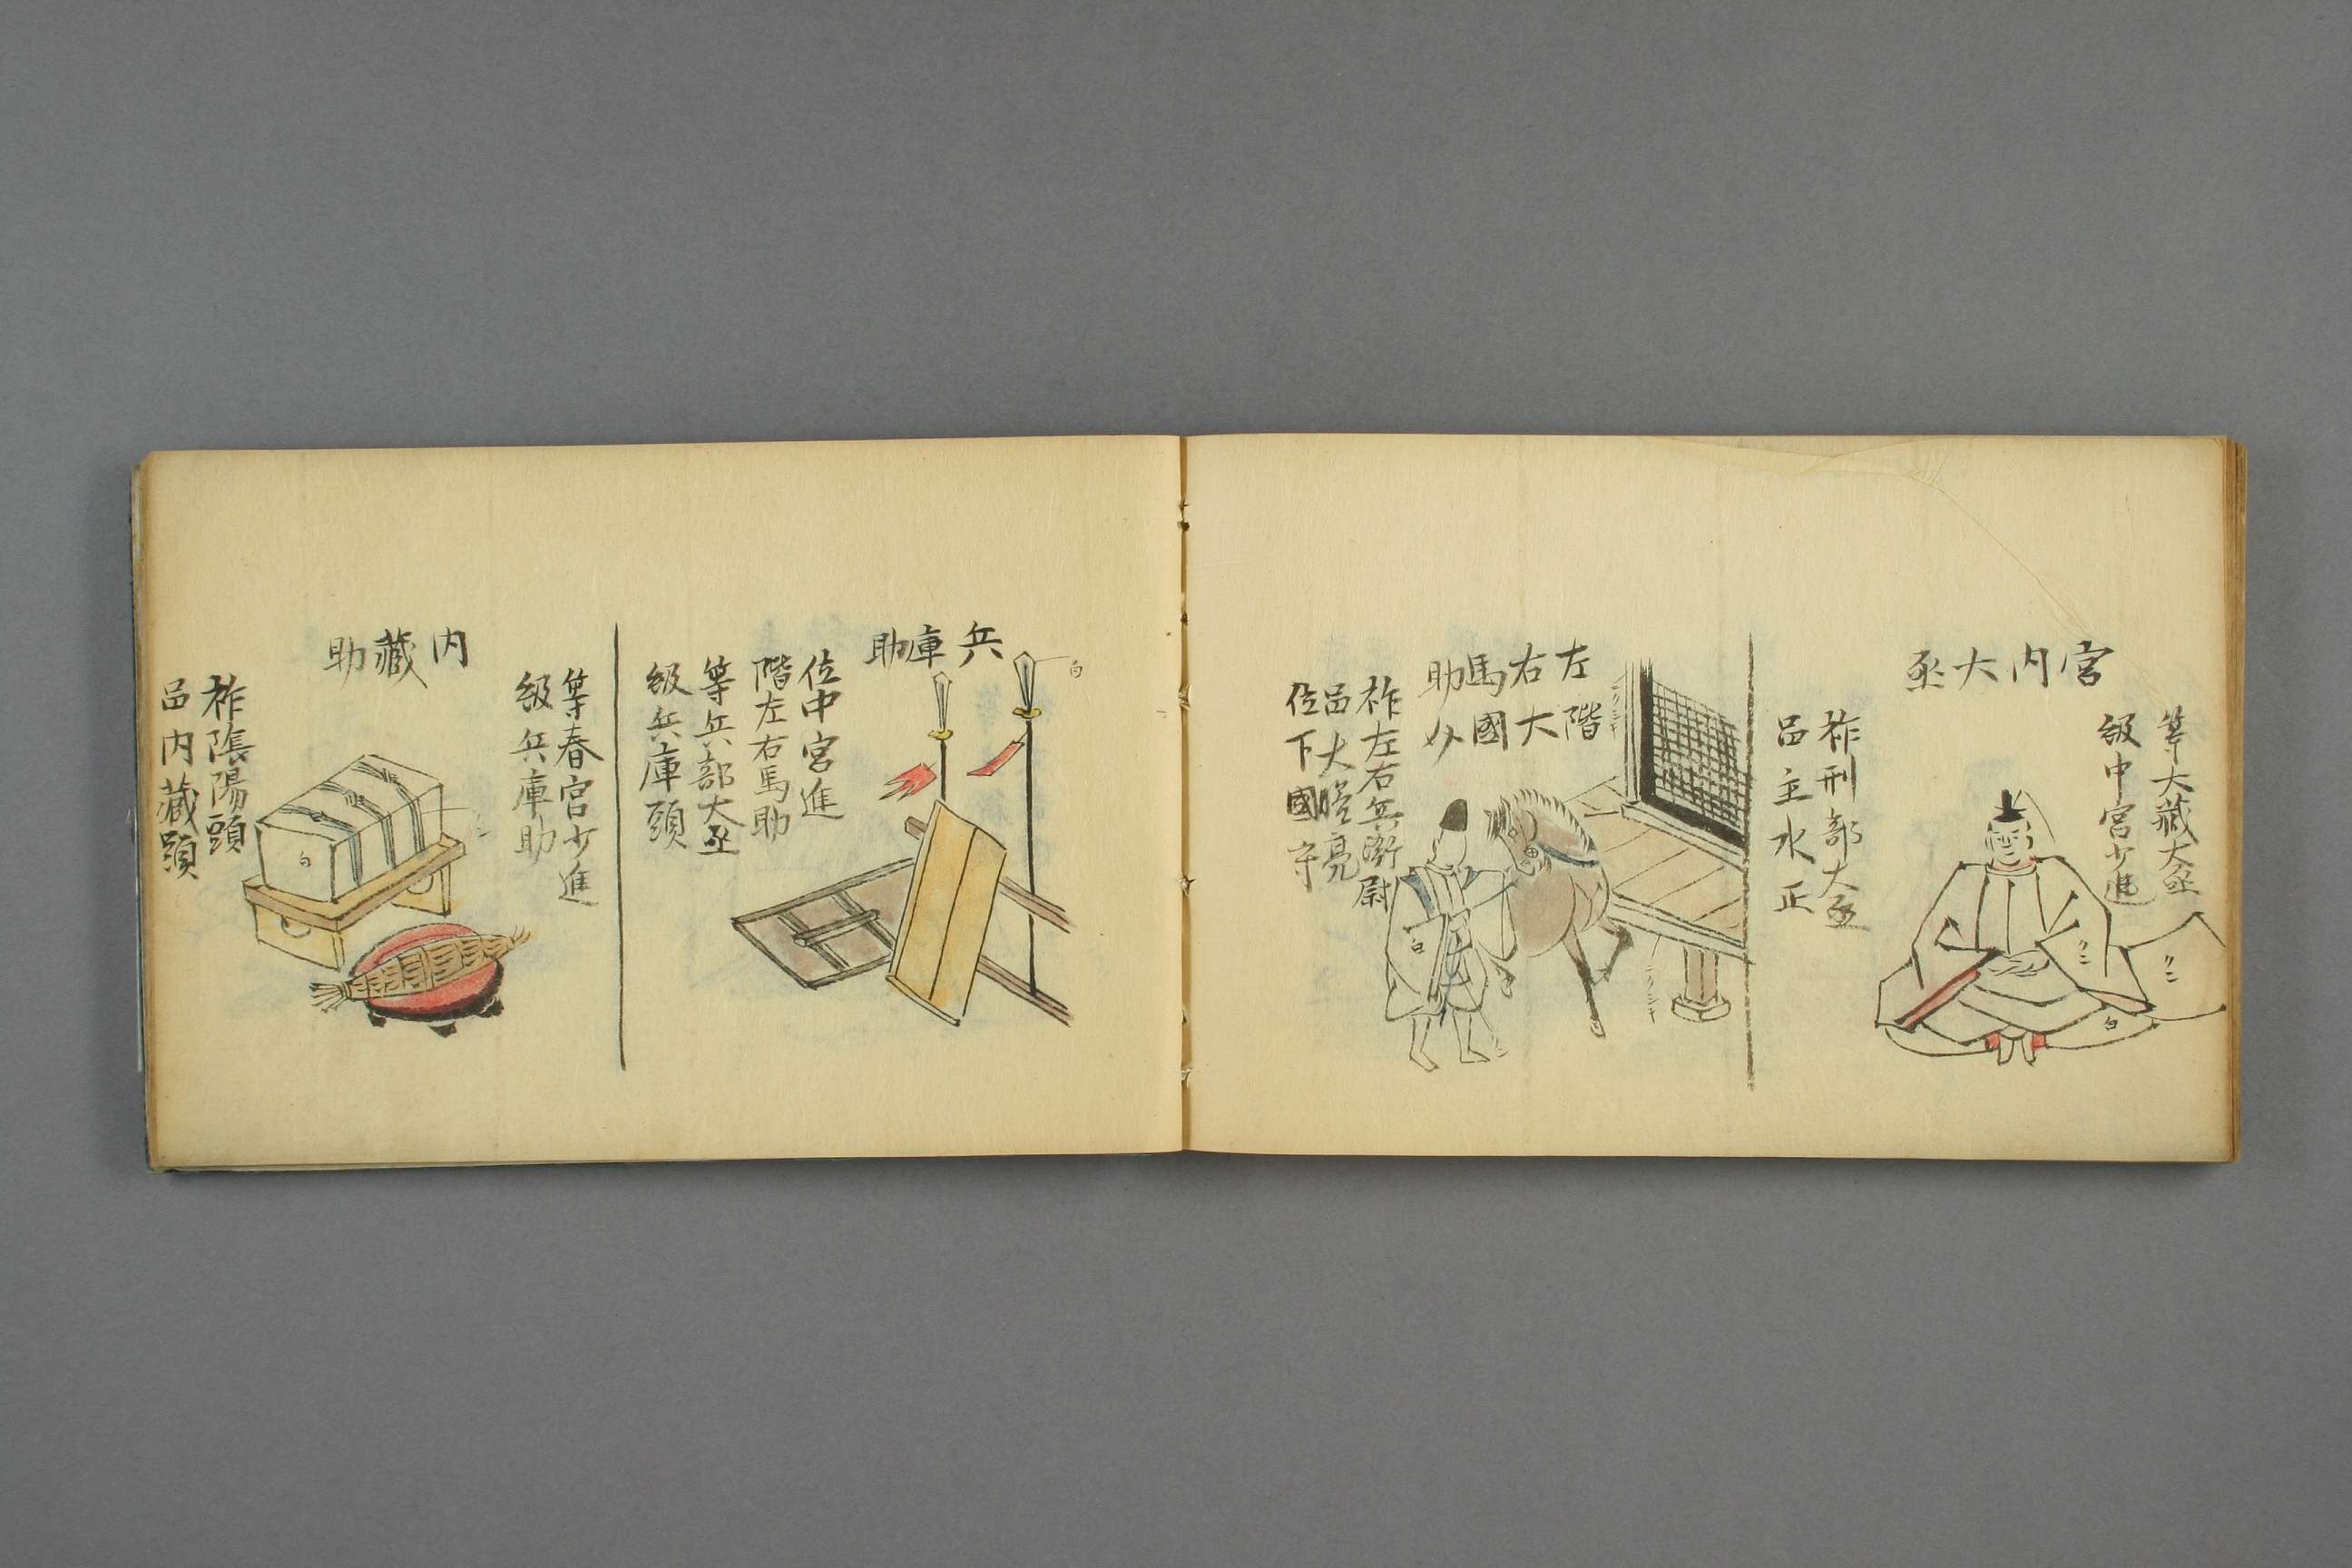 宮内大丞
等大藏大丞
級中宮少進
祚刑部大丞
邑主水正
左右馬助
階大國
祚左右兵衛尉
邑大膳亮
位下國守
兵庫助
位中宮進
階左右馬助
等兵部大丞
級兵庫頭
内藏助
等春宮少進
級兵庫助
祚陰陽頭
邑内藏頭
白
白
クニ
クニ
白
白